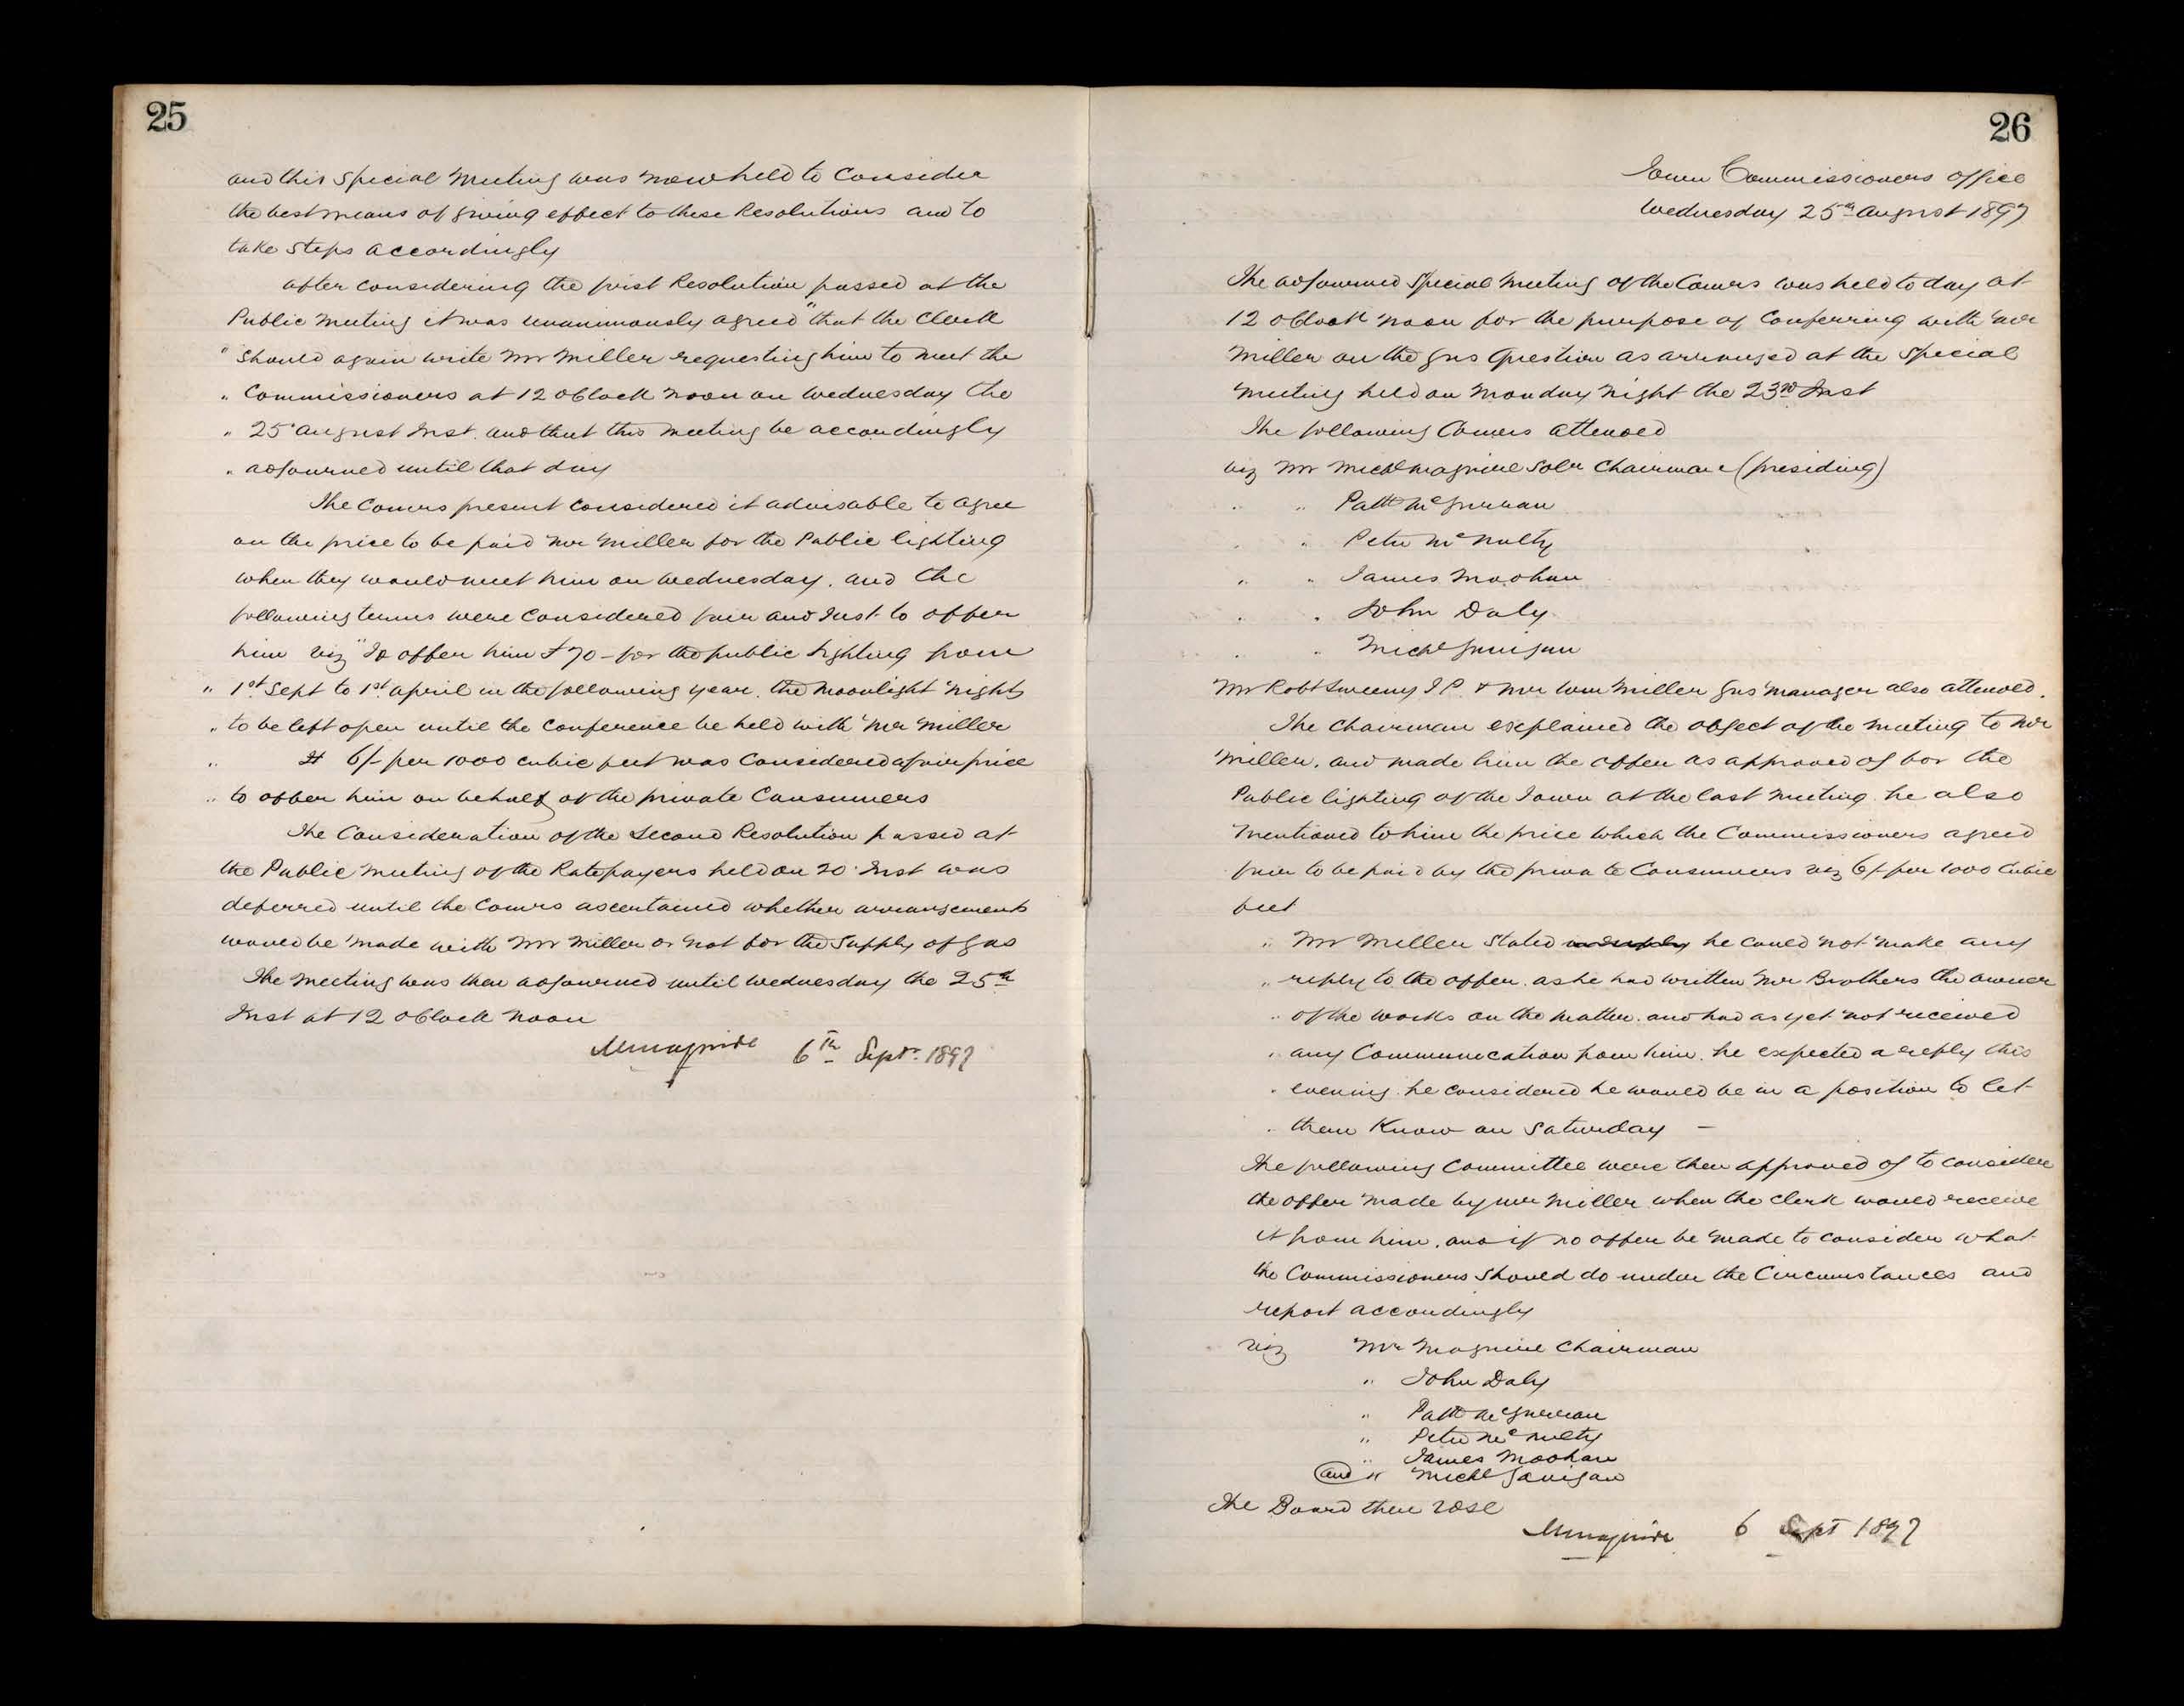 25
and this Special Meeting was now held to Consider
the best means of giving effect to these Resolutions and to
take steps accordingly
after considering the first Resolution passed at the
Public Meeting it was unanimously agreed "that the Clerk
" should again write Mr Miller requesting him to meet the
" Commissioners at 12 oClock noon on Wednesday the
" 25 August Inst. and that this meeting be accordingly
" adjourned until that day
The Comrs present considered it advisable to agree
on the price to be paid Mr Miller for the Public lighting
when they would meet him on Wednesday. and the
following terms were considered fair and Just to offer
him viz "To offer him £70 - for the public lighting from
" 1st Sept to 1st April in the following year. the moonlight nights
" to be left open until the Conference be held with Mr Miller
" 6/- per 1000 cubic feet was Considered a fair price
" to offer him on behalf of the private Consumers
The Consideration of the Second Resolution passed at
the Public Meeting of the Ratepayers held on 20 Inst was
deferred until the Comrs ascertained whether arrangements
would be made with Mr Miller or not for the Supply of gas
The meeting was then adjourned until Wednesday the 25th
Inst at 12 oClock noon
MMaguire 6th Sept. 1897
26
Town Commissioners office
Wednesday 25th August 1897
The adjourned Special Meeting of the Comrs was held to day at
12 oClock noon for the purpose of Conferring with Mr
Miller on the gas Question as arranged at the Special
meeting held on Monday night the 23rd Inst
The following Comrs attended
viz Mr Michl Maguire Solr Chairman (presiding)
" " Patk McGurran
" " Peter McNulty
" " James Moohan
" " John Daly
" " Michl Gavigan
Mr Robt Sweeny J.P. & Mr Wm Miller gas manager also attended.
The Chairman explained the object of the meeting to Mr
Miller. and made him the offer as approved of for the
Public lighting of the Town at the last meeting. he also
mentioned to him the price which the Commissioners agreed
fair to be paid by the private Consumers viz 6/- per 1000 Cubic
feet
" Mr Miller stated he could not make any
" reply to the offer. as he had written Mr Brothers the owner
" of the works on the matter. and had as yet not received
" any Communication from him. he expected a reply this
" evening. he considered he would be in a position to let
" them Know on Saturday -
The following Committee were then approved of to consider
the offer made by Mr Miller when the Clerk would receive
it from him. and if no offer be made to consider what
the Commissioners should do under the Circumstances and
report accordingly
viz Mr Maguire Chairman
" John Daly
" Patk McGurran
" Peter McNulty
" James Moohan
and " Michl Gavigan
The Board then rose
MMaguire 6 Sept 1897